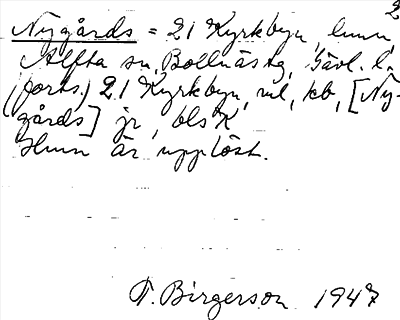 2
Nygårds = 21 Kyrkbyn, hmn,
Alfta sn, Bollnäs tg, Gävl. l.
(forts.) 21 Kyrkbyn, ml, kb, [Ny-
gårds] jr, bls K
Hmn är upplöst.
T. Birgerson 1947